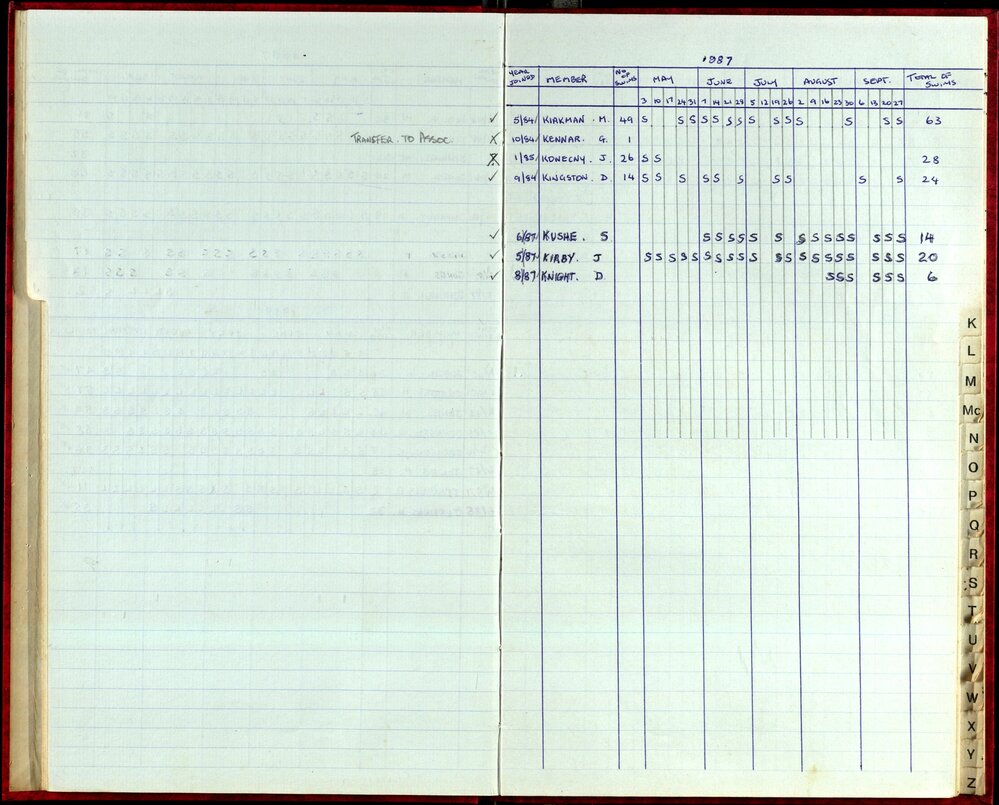 1987
YEAR JOINED MEMBER NO OF SWIMS MAY JUNE JULY AUGUST SEPT. TOTAL OF SWIMS
3 10 17 24 31 7 14 21 28 5 12 19 26 2 9 16 23 30 6 13 20 27
✓ 5/84 KIRKMAN . M. 49 S S S S S S S S S S S S S S 63
TRANSFER TO ASSOC. X 10/84 KENNAR. G. 1
X 1/85 KONECNY. J. 26 S S 28
✓ 9/84 KINGSTON. D. 14 S S S S S S S S S S 24
✓ 6/87 KUSHE. S S S S S S S S S S S S S S S 14
✓ 5/87 KIRBY. J S S S S S S S S S S S S S S S S S S S S 20
✓ 8/87 KNIGHT. D S S S S S S 6
K
L
M
Mc
N
O
P
Q
R
S
T
U
V
W
X
Y
Z